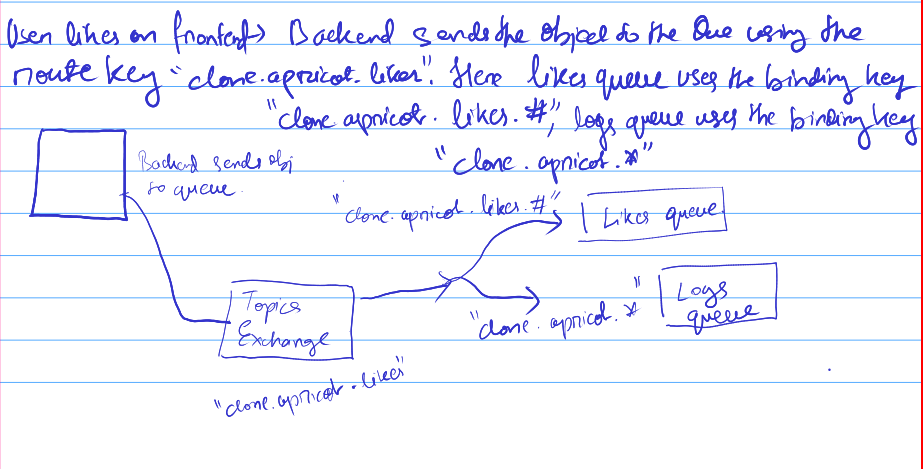 User likes on frontend → Backend sends the object to the Que using the
route key "clone.apricot.likes". Here likes queue uses the binding key
"clone apricot. likes. #", logs queue uses the binding key
"clone. apricot. *"
Backend sends obj
to queue.
"clone.apricot.likes.#"
Likes queue
Topics
Exchange
"clone. apricot. *"
Logs
queue
"clone.apricot.likes"